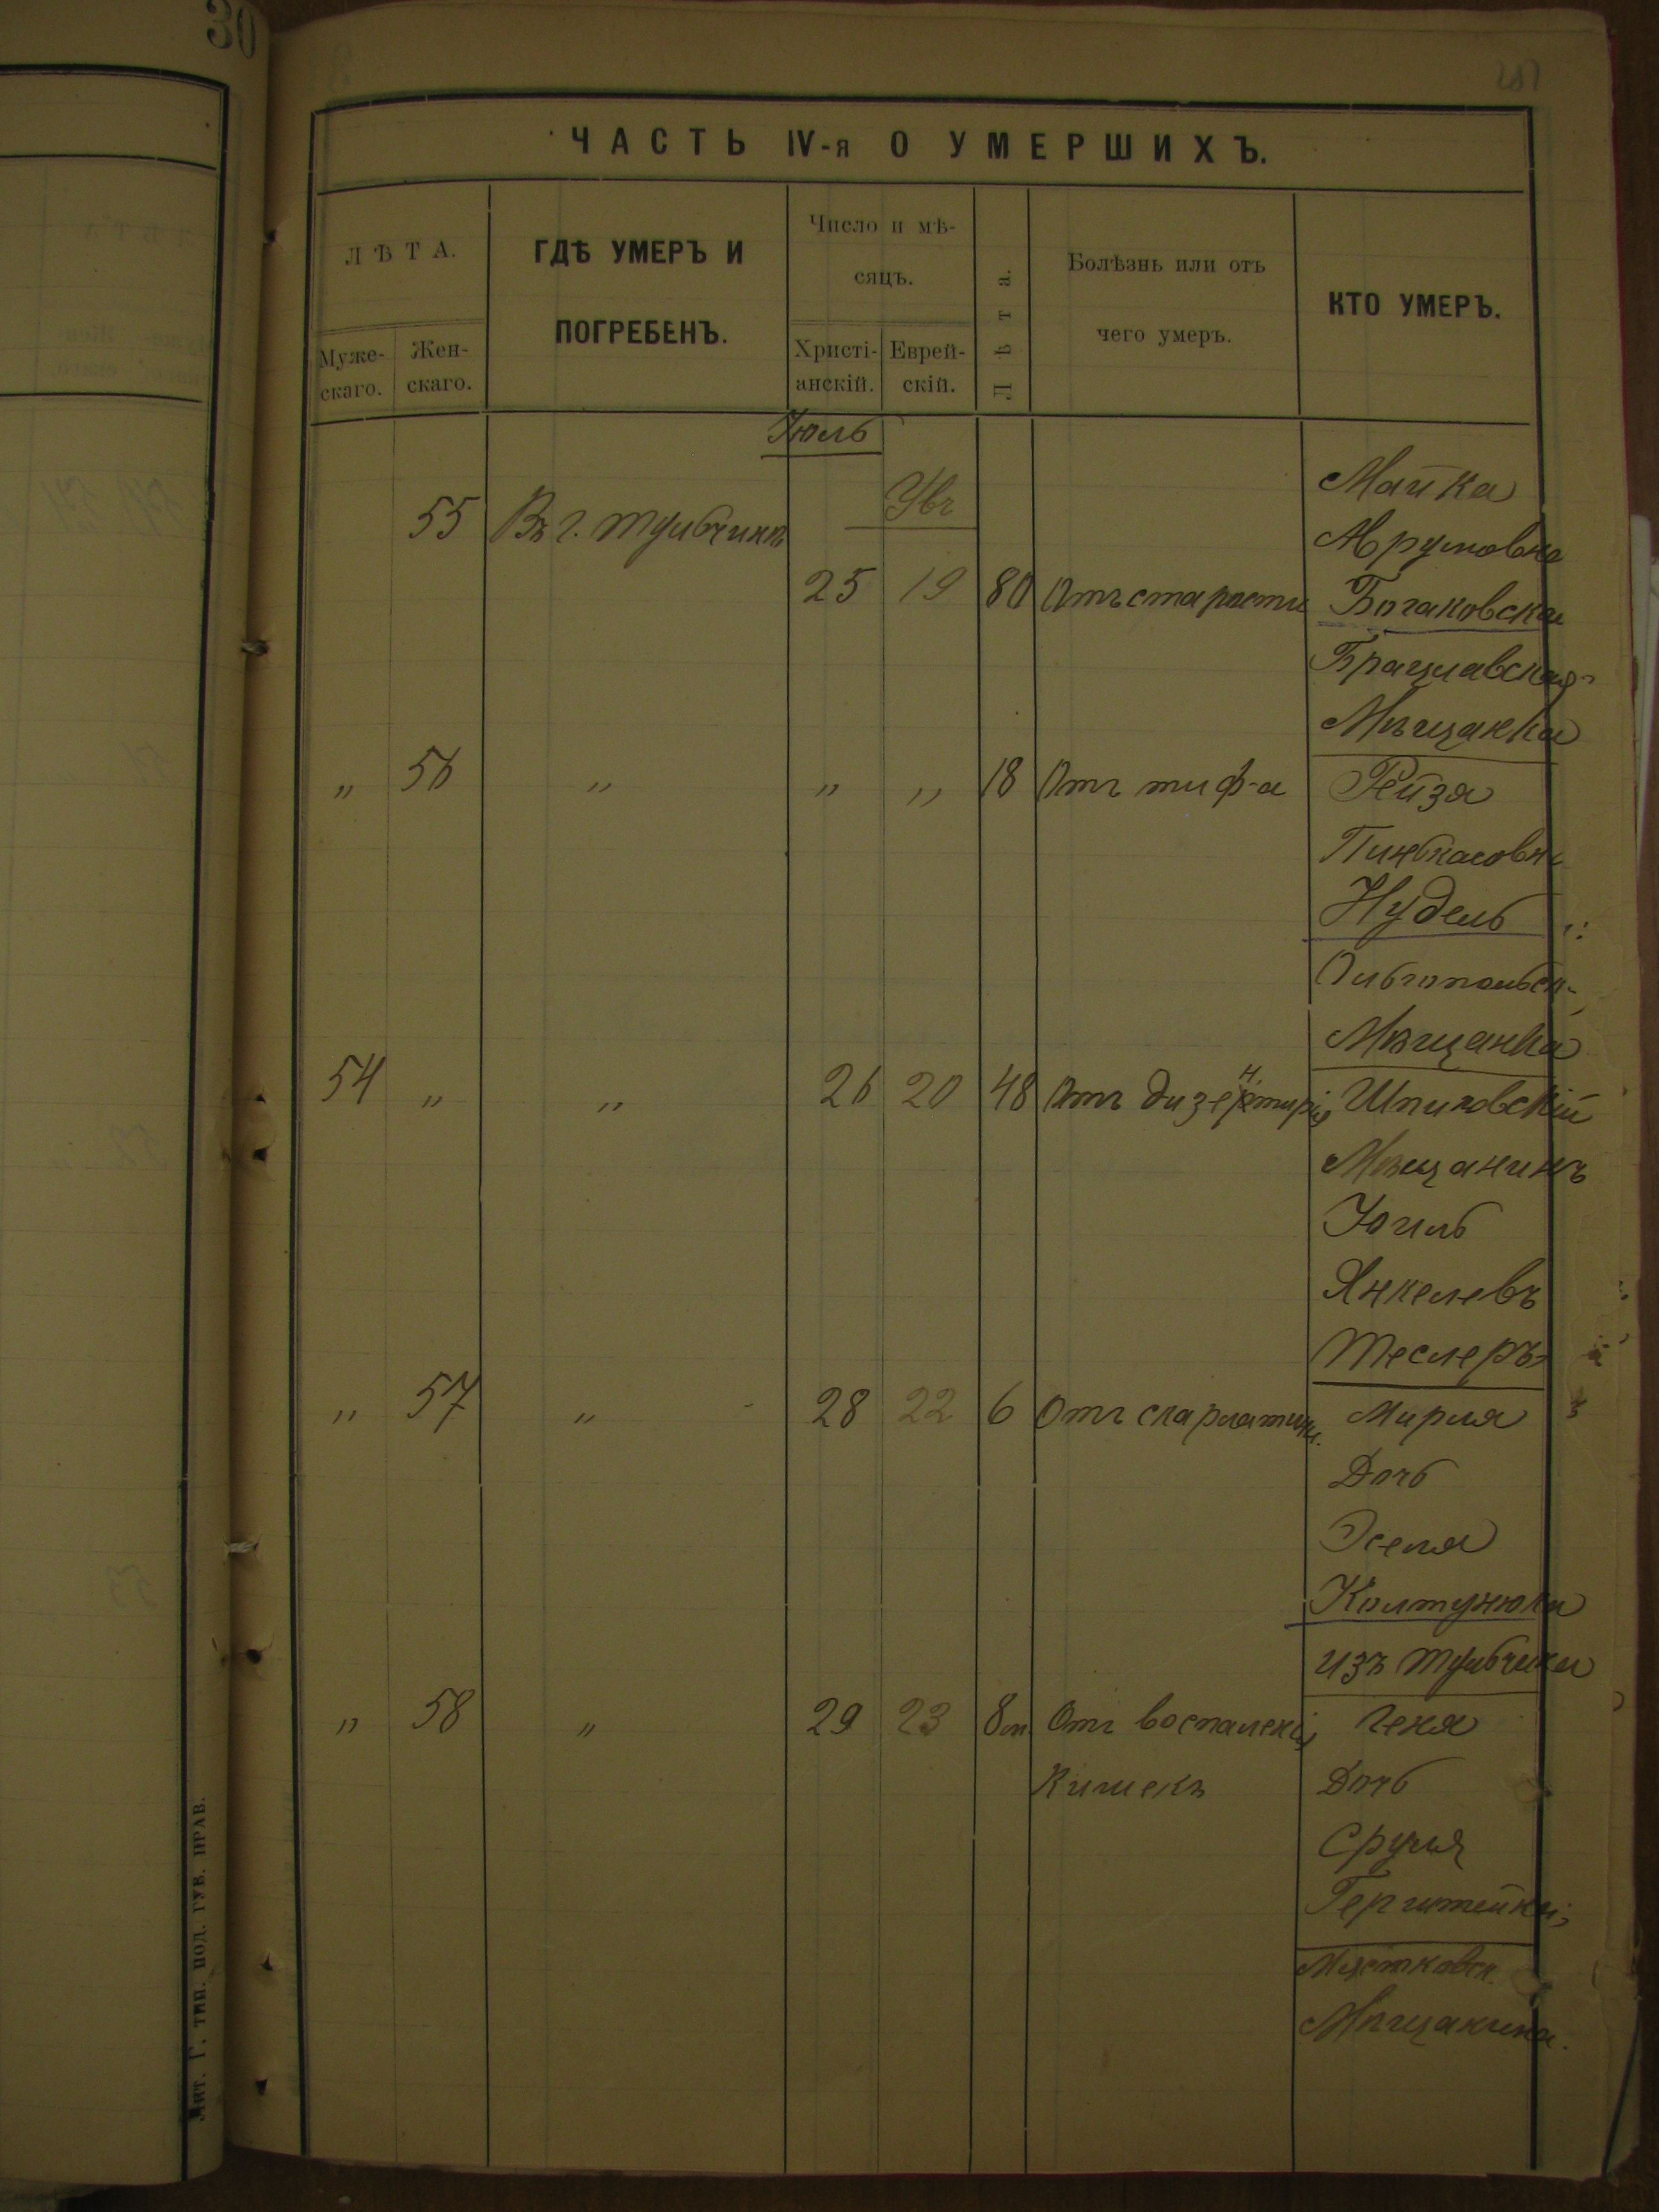 30
ЧАСТЬ IV-я О УМЕРШИХЪ.
ЛѢТА.
Муже-
скаго.
Жен-
скаго.
ГДѢ УМЕРЪ И
ПОГРЕБЕНЪ.
Число и мѣ-
сяцъ.
Христі-
анскій.
Еврей-
скій.
Лѣта.
Болѣзнь или отъ
чего умеръ.
КТО УМЕРЪ.
Іюль
Майка
55 Въ г. Тульчинѣ
Абрумовна
25 19 80 Отъ старости Богаковская
Брацлавская
Мѣщанка
" 56 " " " 18 Отъ тиф-а Рейза
Пинькасовна
Нудель
Ольгопольск.
Мѣщанка
54 " " 26 20 48 Отъ дизентиріи Шпиковскій
Мѣщанинъ
Юиль
Янкелевъ
Теслеръ
" 57 " 28 22 6 Отъ скарлатины. Мирля
Дочь
Эселя
Колтунюка
изъ Тульчина
" 58 " 29 23 8 м. Отъ воспаленія Геня
Кишекъ Дочь
Сруля
Герштейна,
Мястковск.
Мѣщанина.
Лит. Г. тип. под. губ. прав.